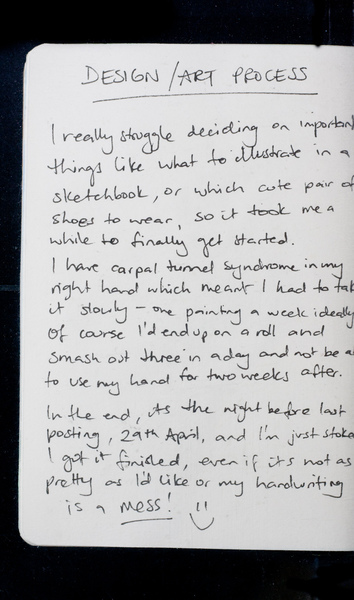 DESIGN / ART PROCESS
I really struggle deciding on important
things like what to illustrate in a
sketchbook, or which cute pair of
shoes to wear, so it took me a
while to finally get started.
I have carpal tunnel syndrome in my
right hand which meant I had to tak
it slowly – one painting a week ideally
Of course I'd end up on a roll and
smash out three in a day and not be a
to use my hand for two weeks after.
In the end, its the night before last
posting, 29th April, and I'm just stoke
I got it finished, even if its not as
pretty as I'd like or my handwriting
is a mess! !!